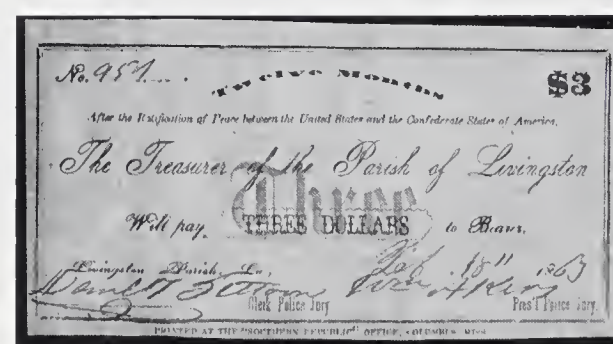 No. 957
Twelve Months
$3
After the Ratification of Peace between the United States and the Confederate States of America,
The Treasurer of the Parish of Livingston
Three
Will pay THREE DOLLARS to Bearer.
Livingston Parish, La, Feb. 18" 1863
Clerk Police Jury Pres't Police Jury.
PRINTED AT THE "SOUTHERN REPUBLIC" OFFICE, COLUMBUS MISS